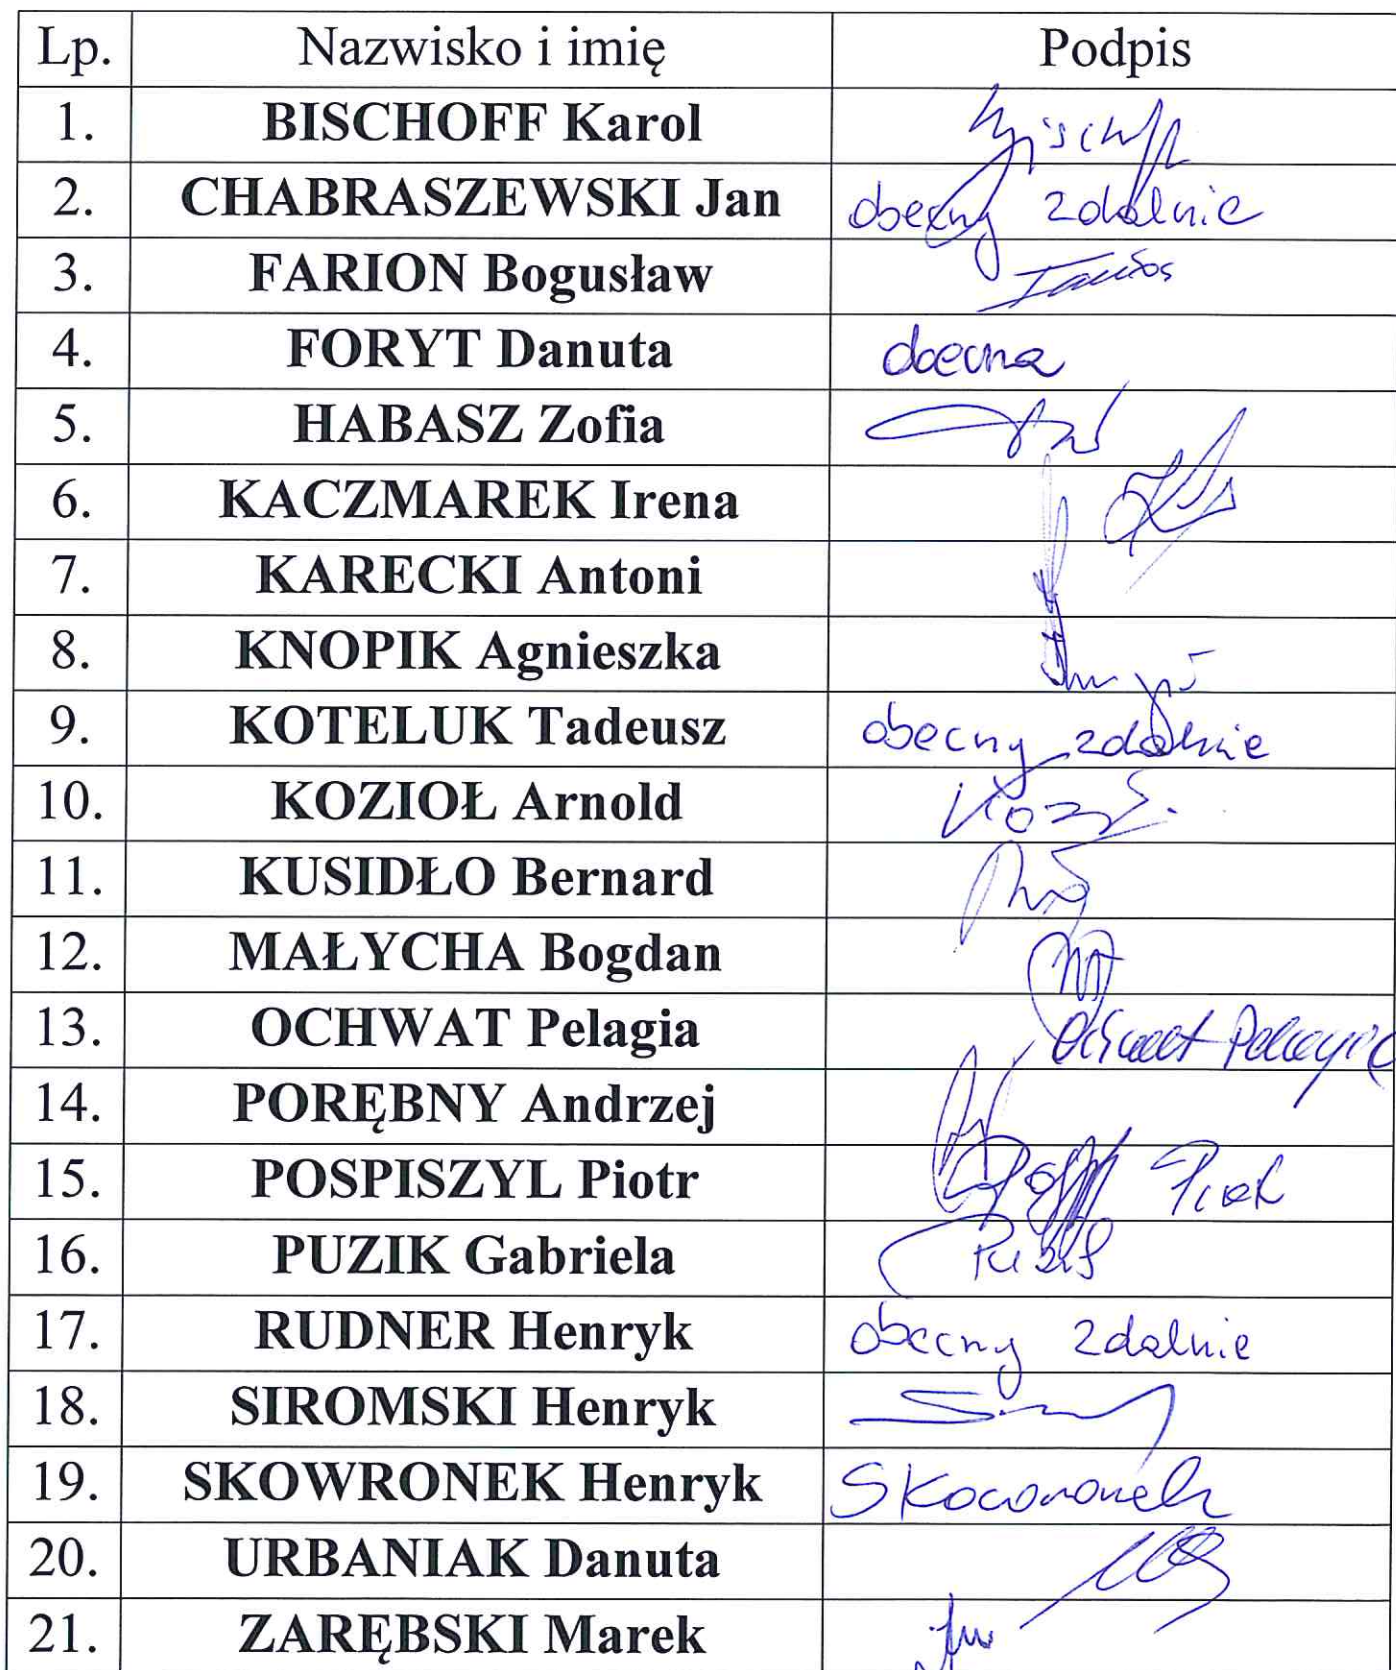 Lp. Nazwisko i imię Podpis
1. BISCHOFF Karol
2. CHABRASZEWSKI Jan obecny zdalnie
3. FARION Bogusław
4. FORYT Danuta obecna
5. HABASZ Zofia
6. KACZMAREK Irena
7. KARECKI Antoni
8. KNOPIK Agnieszka
9. KOTELUK Tadeusz obecny zdalnie
10. KOZIOŁ Arnold
11. KUSIDŁO Bernard
12. MAŁYCHA Bogdan
13. OCHWAT Pelagia Ochwat Pelagia
14. PORĘBNY Andrzej
15. POSPISZYL Piotr
16. PUZIK Gabriela Puzik
17. RUDNER Henryk obecny zdalnie
18. SIROMSKI Henryk
19. SKOWRONEK Henryk Skowronek
20. URBANIAK Danuta
21. ZARĘBSKI Marek